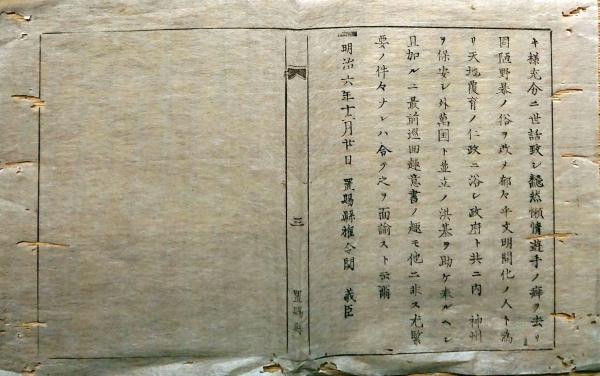 キ様充分ニ世話致シ飜然懶惰遊手ノ癖ヲ去リ
固陋野暴ノ俗ヲ改メ郁々乎文明開化ノ人ト為
リ天地覆育ノ仁政ニ浴シ政府ト共ニ内 神州
ヲ保安シ外萬国ト並立ノ洪基ヲ助ケ奉ルヘシ
且加ルニ最前巡回趣意書ノ趣モ他ニ非ス尤緊
要ノ件々ナレハ合テ之ヲ面諭スト云爾
明治六年十二月廿日 置賜縣権令関 義臣
三
置賜縣